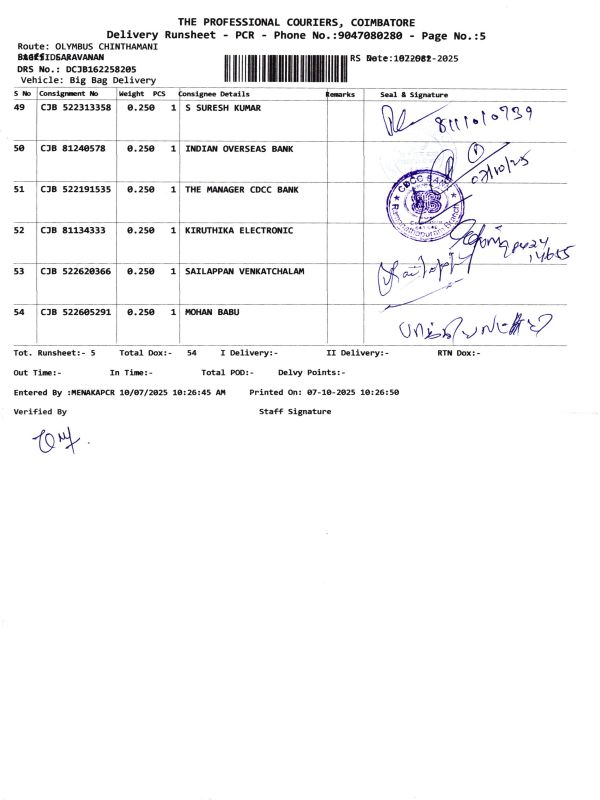 THE PROFESSIONAL COURIERS, COIMBATORE
Delivery Runsheet - PCR - Phone No.:9047080280 - Page No.:5
Route: OLYMBUS CHINTHAMANI
SARAVANAN
RS Date:
-2025
DRS No.: DCJB162258205
Vehicle: Big Bag Delivery
S No Consignment No Weight PCS Consignee Details Remarks Seal & Signature
49 CJB 522313358 0.250 1 S SURESH KUMAR
50 CJB 81240578 0.250 1 INDIAN OVERSEAS BANK
07/10/25
51 CJB 522191535 0.250 1 THE MANAGER CDCC BANK
CDCC BANK
52 CJB 81134333 0.250 1 KIRUTHIKA ELECTRONIC
53 CJB 522620366 0.250 1 SAILAPPAN VENKATCHALAM
54 CJB 522605291 0.250 1 MOHAN BABU
Tot. Runsheet:- 5 Total Dox:- 54 I Delivery:- II Delivery:- RTN Dox:-
Out Time:- In Time:- Total POD:- Delvy Points:-
Entered By :MENAKAPCR 10/07/2025 10:26:45 AM Printed On: 07-10-2025 10:26:50
Verified By Staff Signature